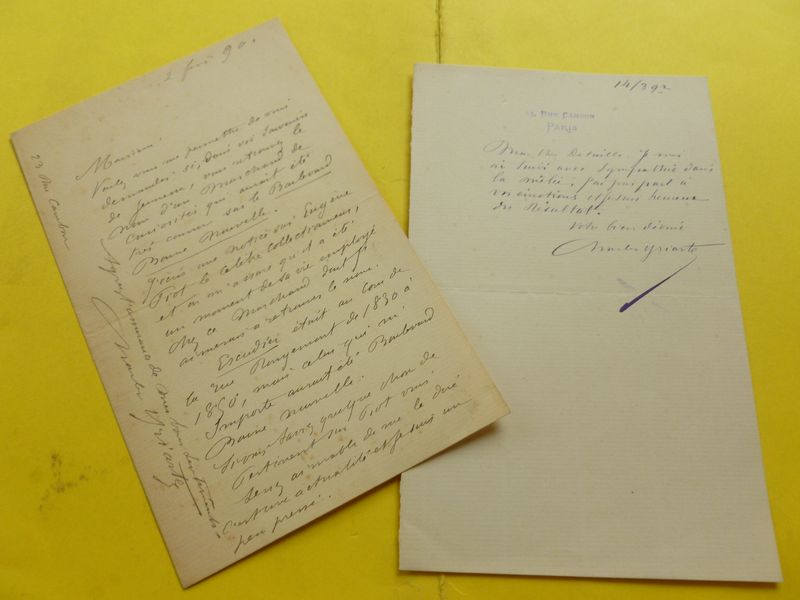 2 fev 90.
23 Rue Cambon
Monsieur.
Voulez vous me permettre de vous
demander si, dans vos souvenirs
de jeunesse, vous retrouvez le
nom d'un Marchand de
curiosités qui aurait été
très connu sur le Boulevard
Bonne Nouvelle.
J'écris une notice sur Eugène
Piot le célèbre collectionneur,
et on m'assure qu'il a été
un moment de sa vie employé
chez ce Marchand dont je
aimerais à retrouver le nom.
Escudier était au coin de
la rue Rougemont de 1830 à
1850, mais celui qui m'
importe aurait été Boulevard
Bonne Nouvelle.
Si vous savez quelque chose de
pertinent sur Piot vous
serez aimable de me le dire
c'est une actualité et je suis un
peu pressé.
Agréez l'assurance de mes bons sentiments
Charles Yriarte
14/3 92
RUE CAMBON
PARIS
Mon cher Detaille. Je vous
ai suivi avec sympathie dans
la mêlée. J'ai pris part à
vos émotions et je suis heureux
du Résultat.
Votre bien dévoué
Charles Yriarte